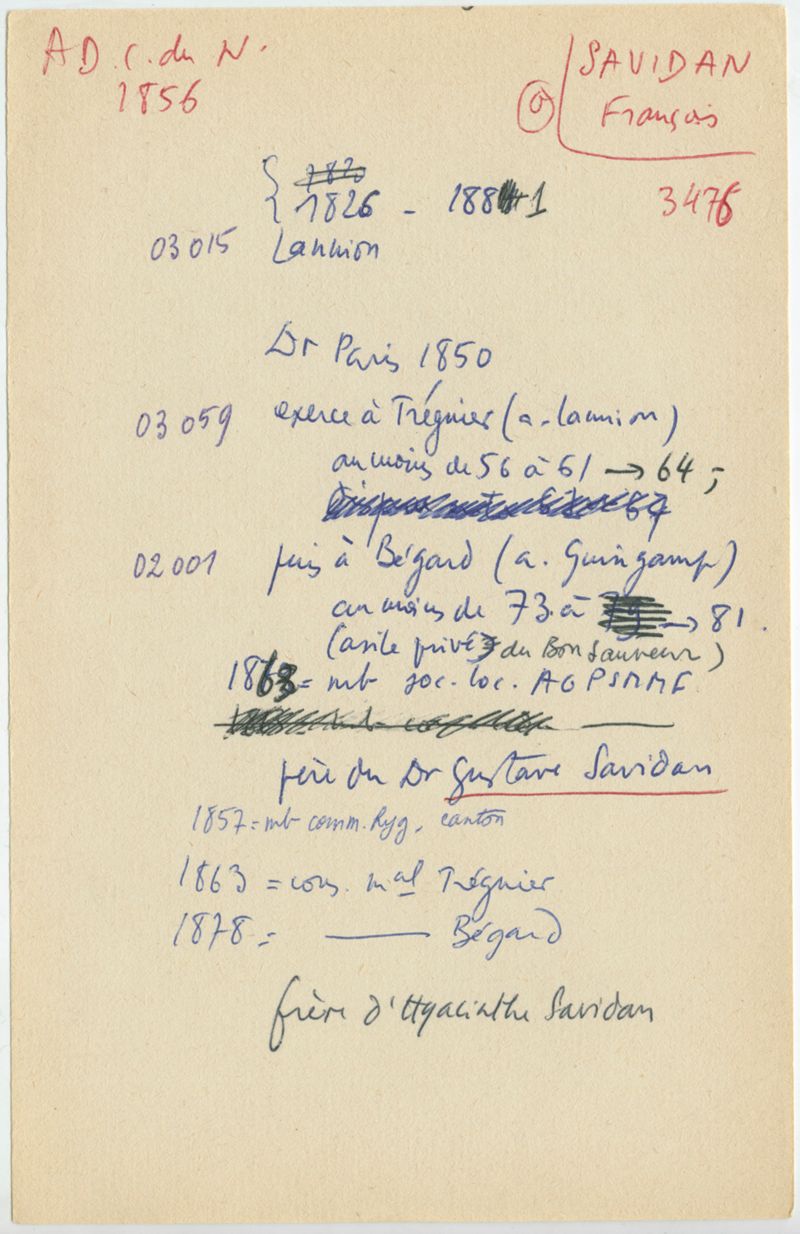 AD. C. du N.
1856
SAVIDAN
François
3476
1826 - 1881
03 015 Lannion
Dr Paris 1850
03 059 exerce à Tréguier (a. Lannion)
au moins de 56 à 61 → 64 ;
02 001 puis à Bégard (a. Guingamp)
au moins de 73 à → 81.
(asile privé du Bon Sauveur)
1868 = mb soc. loc. AGPSMMF
père du Dr Gustave Savidan
1857 = mb comm. Hyg. canton
1863 = cons. mal Tréguier
1878 = —— Bégard
frère d'Hyacinthe Savidan